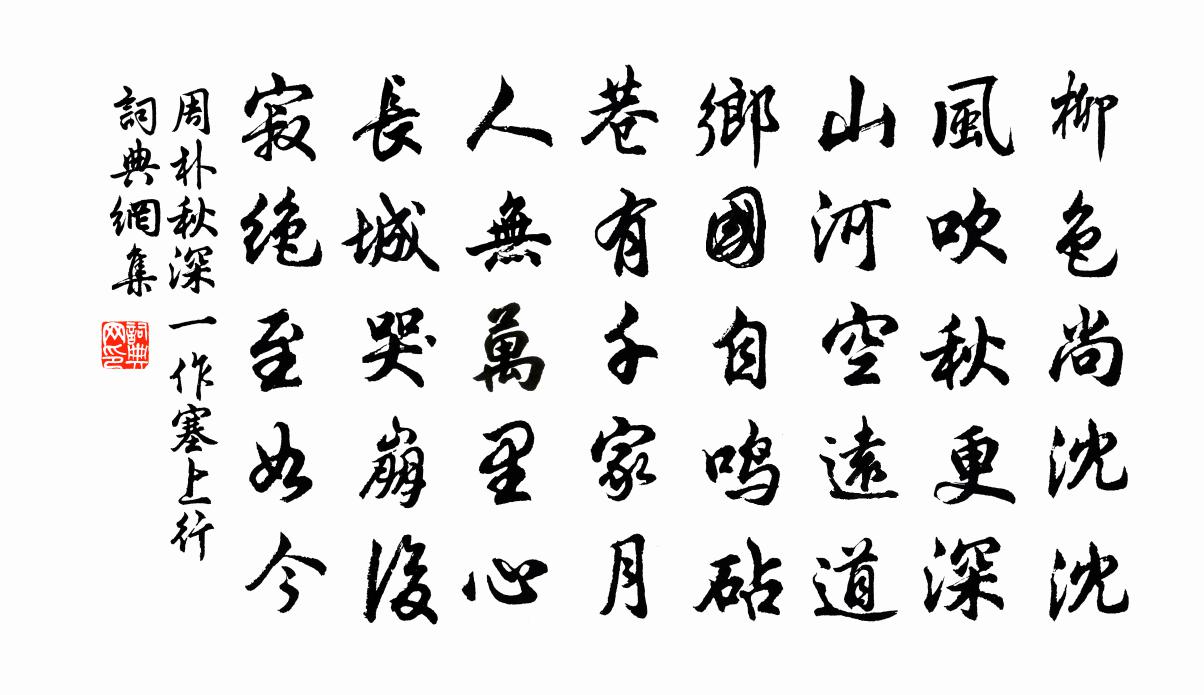 柳色尚沈沈
風吹秋更深
山河空遠道
鄉國自鳴砧
巷有千家月
人無萬里心
長城哭崩後
寂絶至如今
周朴秋深一作塞上行
詞典網集
詞典
网印